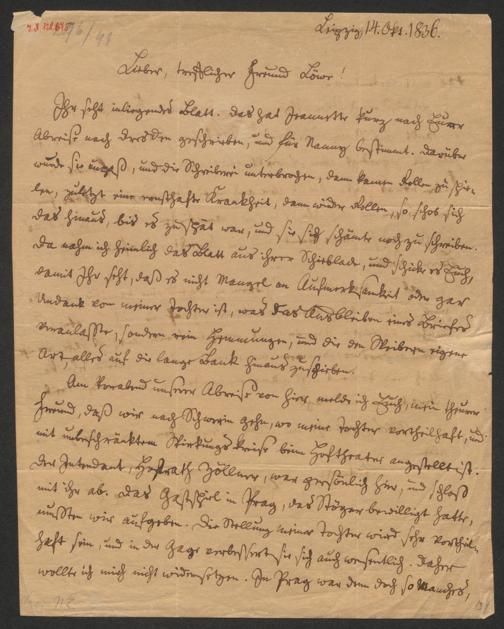 Leipzig, 14. Okt. 1836.
Lieber, trefflicher Freund Löwe!
Ihr seht inliegendes Blatt. Das hat Jeannette kurz nach Eurer
Abreise nach Dresden geschrieben, und für Nanny bestimmt. Darüber
wurde sie, und die Schreiberei unterbrochen, dann kamen Rollen zu spie-
len, zuletzt eine ernsthafte Krankheit, dann wieder Rollen, so schob sich
das hinaus, bis es zu spät war, und sie sich schämte noch zu schreiben.
Da nahm ich heimlich das Blatt aus ihrer Schiblade, und schicke es Euch,
damit Ihr seht, daß es nicht Mangel an Aufmerksamkeit oder gar
Undank von meiner Tochter ist, was das Ausbleiben eines Briefes
veranlaßte, sondern rein Hemmungen, und die den Weibern eigene
Art, alles auf die lange Bank hinaus zu schieben.
Am Vorabend unserer Abreise von hier melde ich Euch, mein theurer
Freund, daß wir nach Schwerin gehn, wo meine Tochter vortheilhaft, und
mit unbeschränktem Wirkungskreise beim Hoftheater angestellt ist.
Der Intendant, Hofrath Zöllner, war persönlich hier, und schloß
mit ihr ab. Das Gastspiel in Prag, das Stöger bewilligt hatte,
mußten wir aufgeben. Die Stellung meiner Tochter wird sehr vortheil-
haft sein, und in der Gage verbessert sie sich auch wesentlich. Daher
wollte ich mich nicht widersetzen. In Prag war denn doch so Manches,